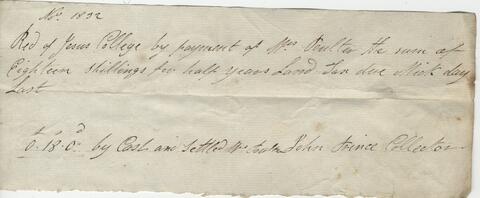 Nov. 1832
Recd of Jesus College by payment of Mrs Poulter the sum of
Eighteen shillings for half years Land Tax due Mich day
Last
0- 18- 0d by Cash and Settled John Prince Collector